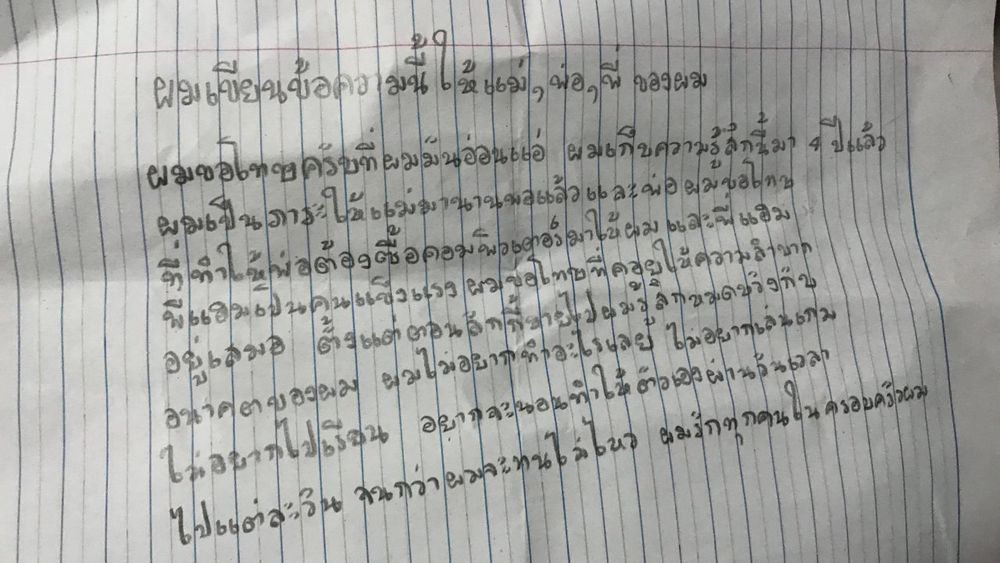 ผมเขียนข้อความนี้ ให้แม่,พ่อ,พี่ ของผม
ผมขอโทษครับที่ผมมันอ่อนแอ่ ผมเก็บความรู้สึกนี้มา 4 ปีแล้ว
ผมเป็นภาระให้แม่มานานพอแล้วและพ่อผมขอโทษ
ที่ทำให้พ่อต้องซื้อคอมพิวเตอร์มาให้ผมและพี่แอิม
พี่แอิมเป็นคนแข็งแรง ผมขอโทษที่คอยให้ความลำบาก
อยู่เสมอ ตั้งแต่ตอนลักกี้หายไปผมรู้สึกหมดหวังกับ
อนาคตของผม ผมไม่อยากทำอะไรเลย ไม่อยากเล่นเกม
ไม่อยากไปเรียน อยากจะนอนทำให้ตัวเองผ่านวันเวลา
ไปแต่ละวัน จนกว่าผมจะทนไม่ไหว ผมรักทุกคนในครอบครัวผม